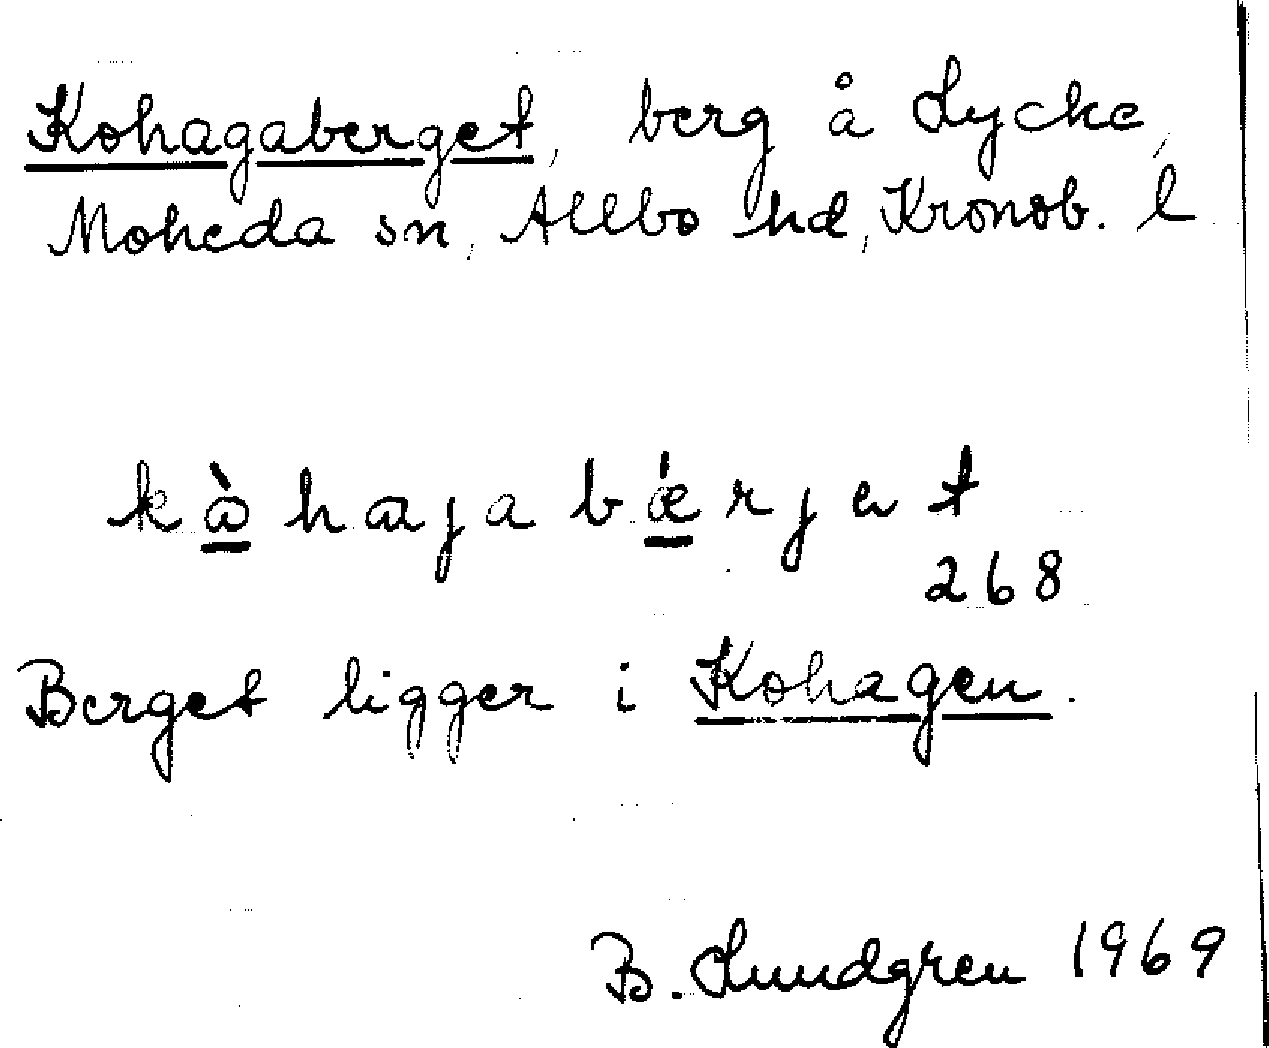 Kohagaberget, berg å Lycke,
Moheda sn, Allbo hd, Kronob. l
kàhaɟabǽrɟet
268
Berget ligger i Kohagen.
B. Lundgren 1969